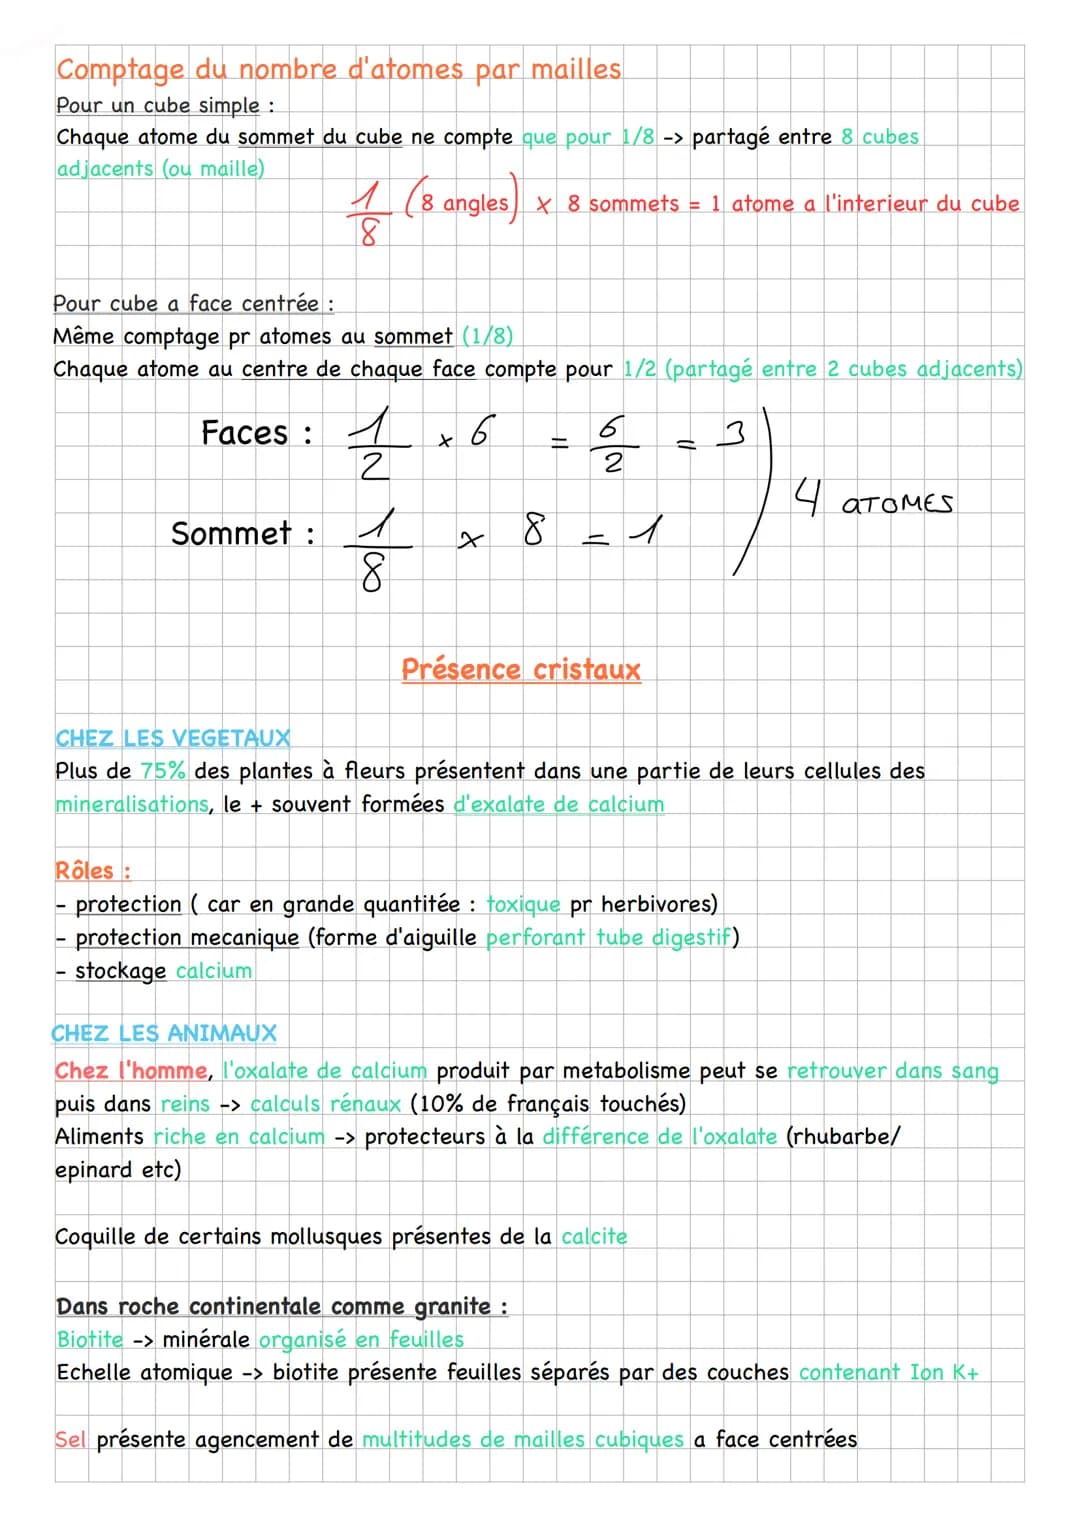 Comptage du nombre d'atomes par mailles
Pour un cube simple :
Chaque atome du sommet du cube ne compte que pour 1/8 -> partagé entre 8 cubes
adjacents (ou maille)
1/8 (8 angles) x 8 sommets = 1 atome a l'interieur du cube
Pour cube a face centrée :
Même comptage pr atomes au sommet (1/8)
Chaque atome au centre de chaque face compte pour 1/2 (partagé entre 2 cubes adjacents)
Faces : 1/2 x 6 = 6/2 = 3
4 ATOMES
Sommet : 1/8 x 8 = 1
Présence cristaux
CHEZ LES VEGETAUX
Plus de 75% des plantes à fleurs présentent dans une partie de leurs cellules des
mineralisations, le + souvent formées d'exalate de calcium
Rôles :
- protection ( car en grande quantitée : toxique pr herbivores)
- protection mecanique (forme d'aiguille perforant tube digestif)
- stockage calcium
CHEZ LES ANIMAUX
Chez l'homme, l'oxalate de calcium produit par metabolisme peut se retrouver dans sang
puis dans reins -> calculs rénaux (10% de français touchés)
Aliments riche en calcium -> protecteurs à la différence de l'oxalate (rhubarbe/
epinard etc)
Coquille de certains mollusques présentes de la calcite
Dans roche continentale comme granite :
Biotite -> minérale organisé en feuilles
Echelle atomique -> biotite présente feuilles séparés par des couches contenant Ion K+
Sel présente agencement de multitudes de mailles cubiques a face centrées